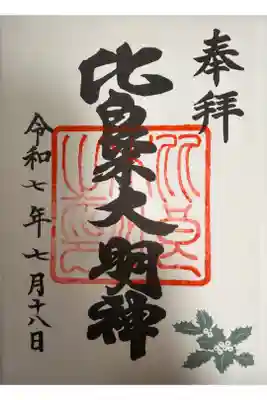 奉拝
比良木大明神
令和七年七月十八日